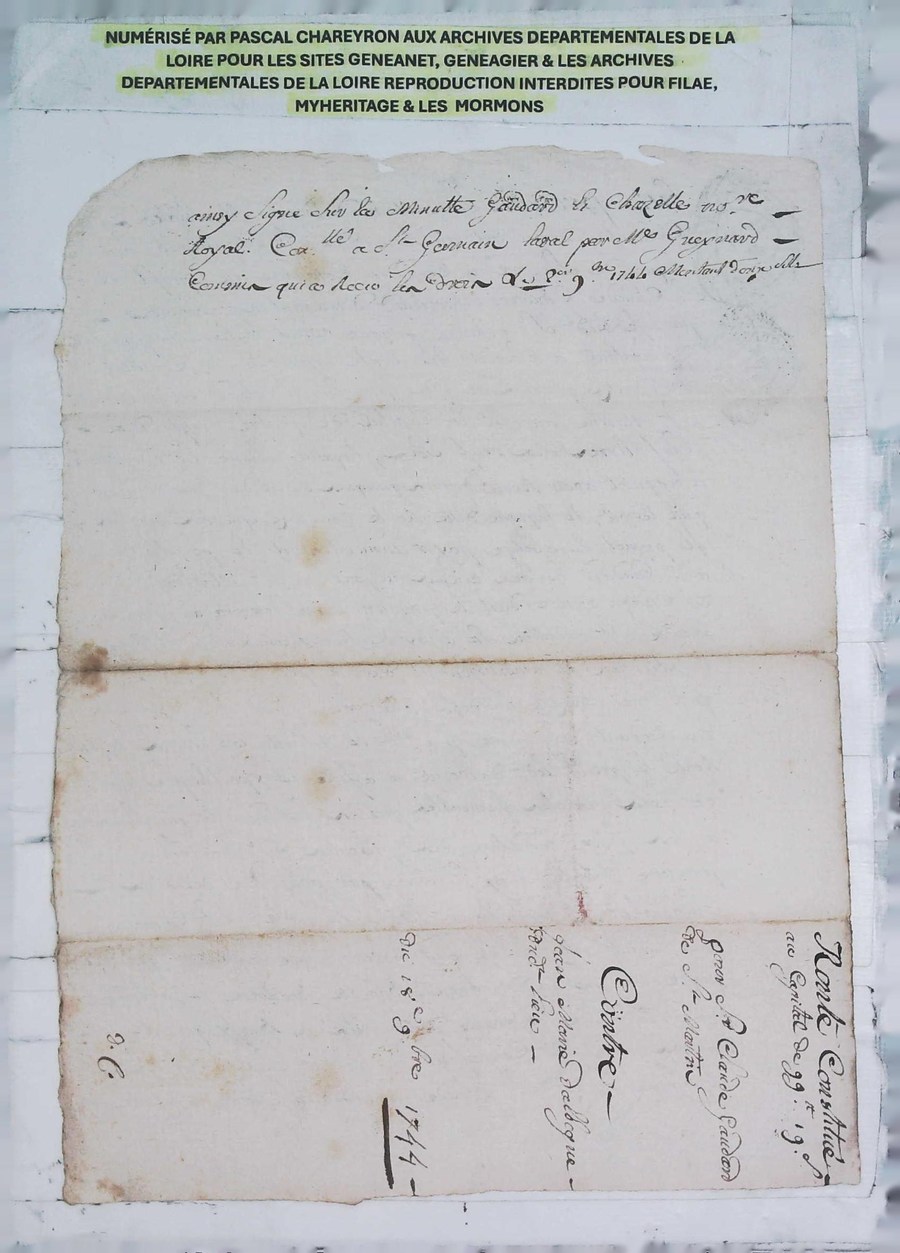 NUMÉRISÉ PAR PASCAL CHAREYRON AUX ARCHIVES DEPARTEMENTALES DE LA
LOIRE POUR LES SITES GENEANET, GENEAGIER & LES ARCHIVES
DEPARTEMENTALES DE LA LOIRE REPRODUCTION INTERDITES POUR FILAE,
MYHERITAGE & LES MORMONS
ainsy signé sur la Minutte Gaudard et Chazelle no.re
Royal. Con.llé a St Germain laval par Me Greynard
Commis qui a Recu les droits Le 9.bre 1744
Rente Constitué
au Capital de 99.lt 19.s
pour Sr Claude Gaudard
de St Martin
Contre
Jean Marie dalbegue
dudt lieu
du 18e 9.bre 1744